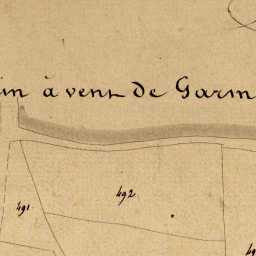 in à vent de Garm
492
491
49